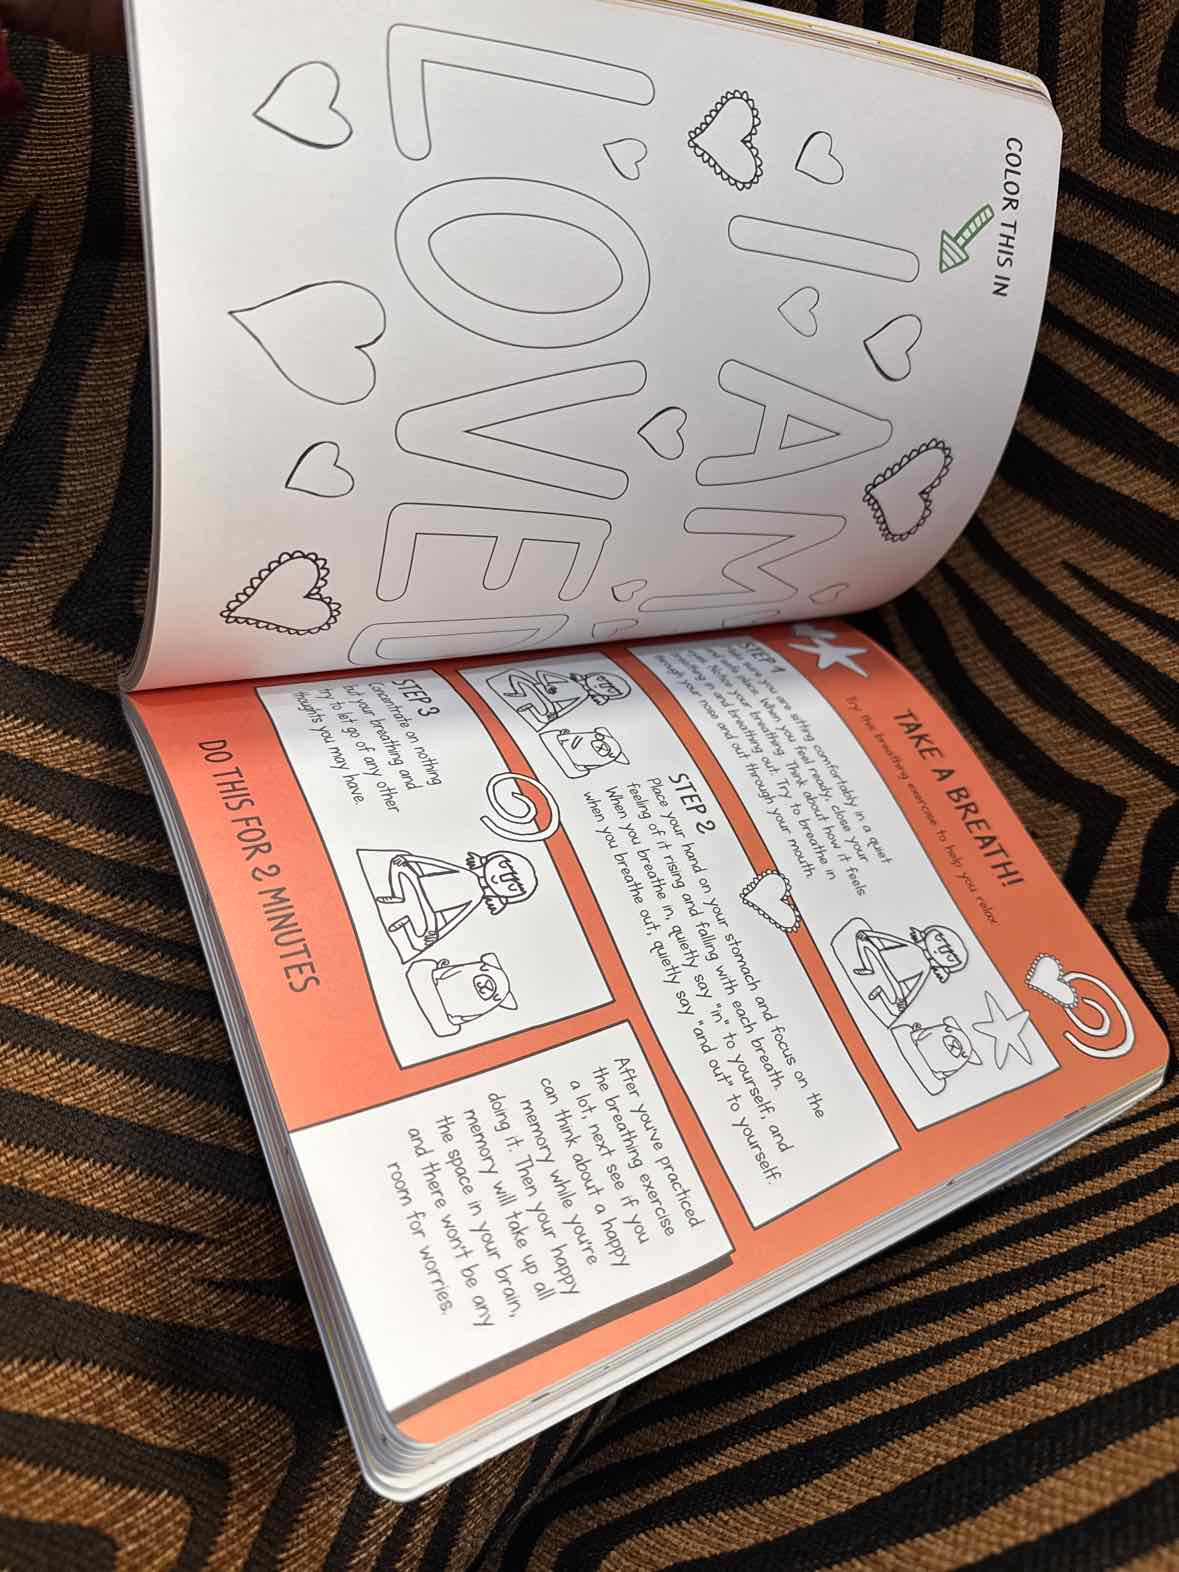 COLOR THIS IN
I AM
LOVED
TAKE A BREATH!
Try this breathing exercise to help you relax
STEP 1
Make sure you are sitting comfortably in a quiet
and safe place. When you feel ready, close your
eyes. Notice your breathing. Think about how it feels
breathing in and breathing out. Try to breathe in
through your nose and out through your mouth.
STEP 2
Place your hand on your stomach and focus on the
feeling of it rising and falling with each breath.
When you breathe in, quietly say "in" to yourself, and
when you breathe out, quietly say "and out" to yourself.
STEP 3
Concentrate on nothing
but your breathing and
try to let go of any other
thoughts you may have.
After you've practiced
the breathing exercise
a lot, next see if you
can think about a happy
memory while you're
doing it. Then your happy
memory will take up all
the space in your brain,
and there won't be any
room for worries.
DO THIS FOR 2 MINUTES